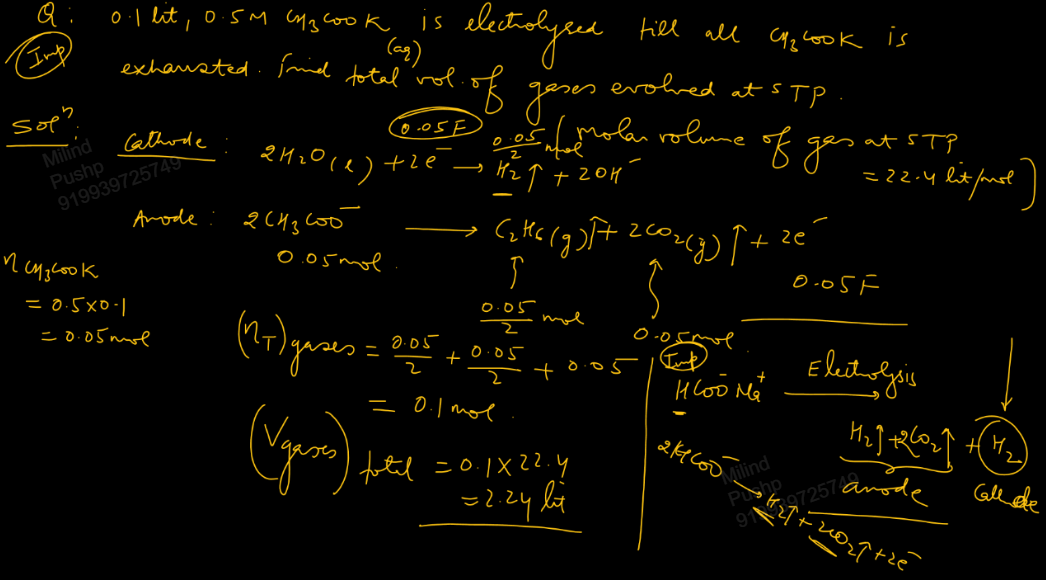 Q: 0.1 lit, 0.5M CH3COOK is electrolysed till all CH3COOK is
(aq)
exhausted. Find total vol. of gases evolved at STP.
(Imp)
Solⁿ:
0.05F
Cathode: 2H2O(l) + 2e⁻ → H2↑ + 2OH⁻
0.05/2 mol
(Molar volume of gas at STP
= 22.4 lit/mol)
Anode: 2CH3COO⁻ → C2H6(g)↑ + 2CO2(g)↑ + 2e⁻
0.05 mol.
0.05F
0.05/2 mol
0.05 mol.
n CH3COOK
= 0.5×0.1
= 0.05 mol
(nT) gases = 0.05/2 + 0.05/2 + 0.05
= 0.1 mol.
(Vgases) total = 0.1 × 22.4
= 2.24 lit
(Imp)
HCOO⁻Na⁺ Electrolysis →
H2↑ + 2CO2↑ + H2
anode Cathode
2HCOO⁻ → H2↑ + 2CO2↑ + 2e⁻
Milind
Pushp
919939725749
Milind
Pushp
919939725749